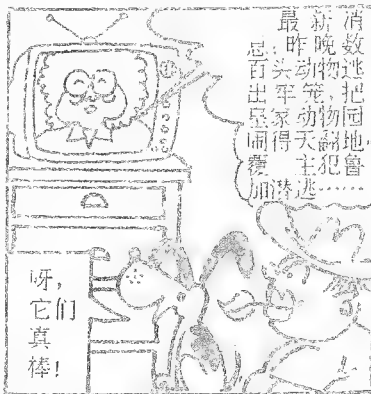 最新消
息：昨晚数
百头动物逃
出牢笼，把
皇家动物园
闹得天翻地
覆，主犯鲁
加潜逃……
呀，
它们
真
棒！